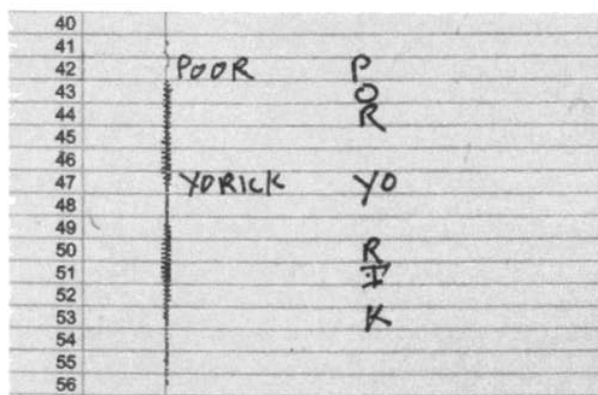 40
41
42 POOR P
43 O
44 R
45
46
47 YORICK YO
48
49
50 R
51 I
52
53 K
54
55
56